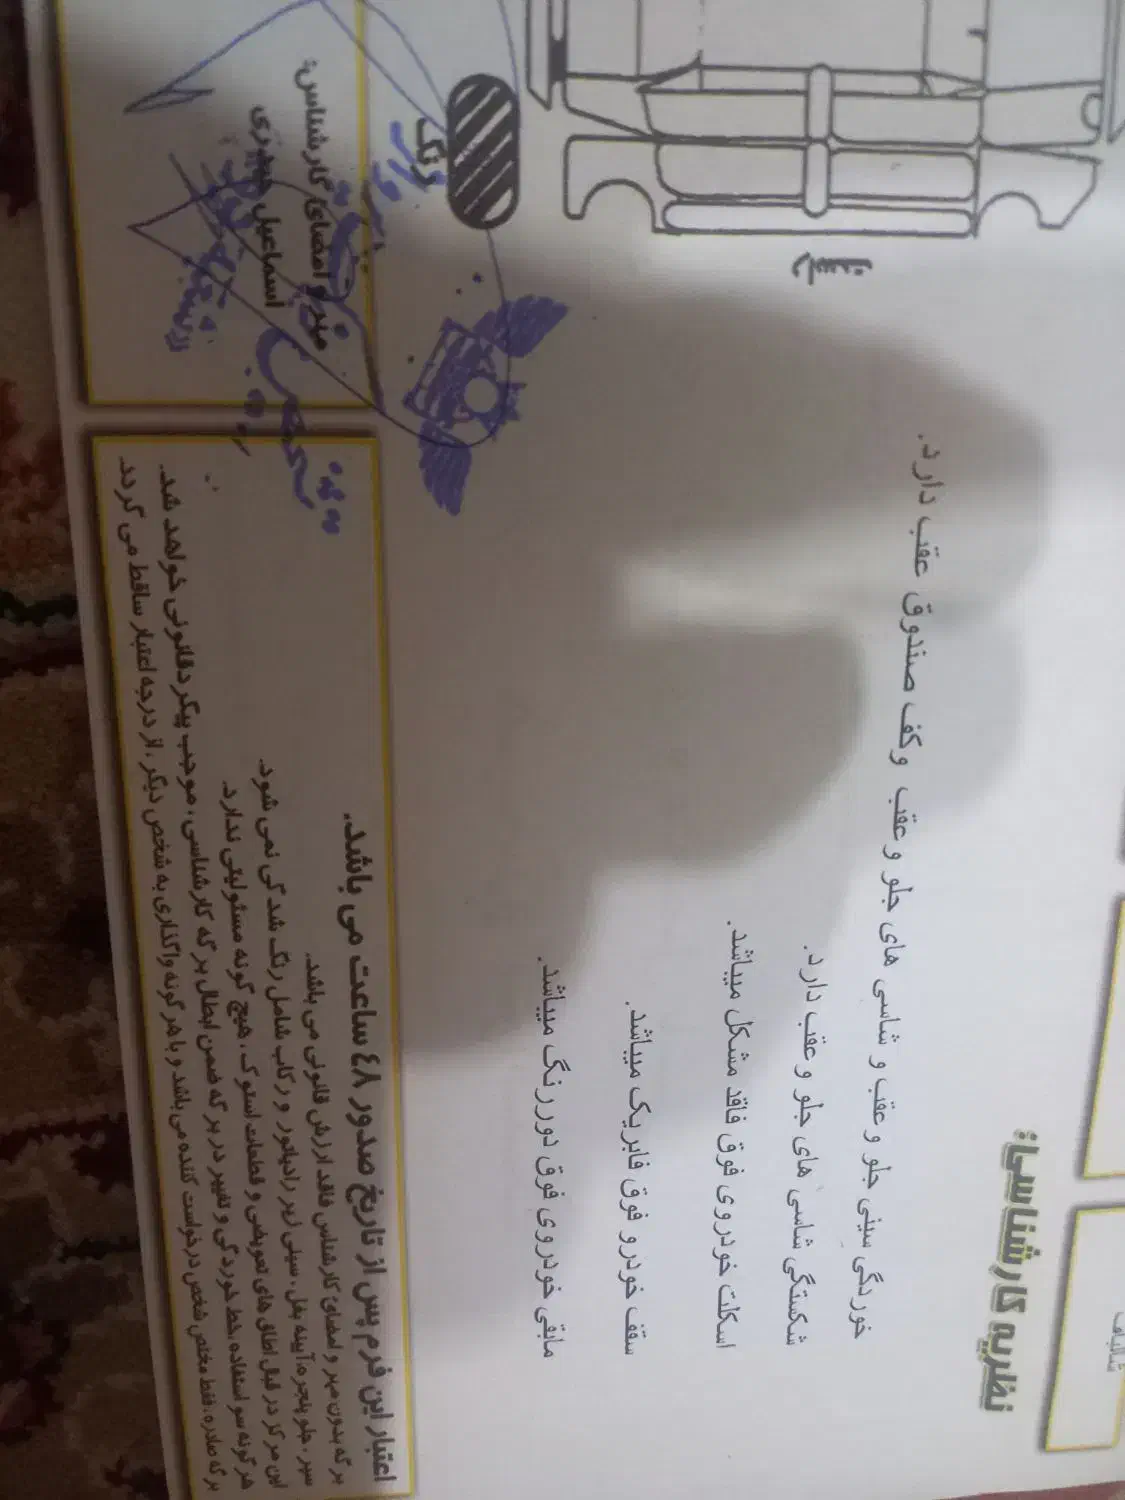 نظریه کارشناسی:
خوردگی سینی جلو و عقب و شاسی های جلو و عقب وکف صندوق عقب دارد.
شکستگی شاسی های جلو و عقب دارد.
اسکلت خودروی فوق فاقد مشکل میباشد.
سقف خودرو فوق فابریک میباشد.
مابقی خودروی فوق دور رنگ میباشد.
رنگ
اعتبار این فرم پس از تاریخ صدور ٤٨ ساعت می باشد.
برگه بدون مهر و امضای کارشناس فاقد ارزش قانونی می باشد.
سپر، جلو پنجره، آیینه بغل، سینی زیر رادیاتور و رکاب شامل رنگ شدگی نمی شود.
این مرکز در قبال اطاق های تعویضی و قطعات استوک، هیچ گونه مسئولیتی ندارد.
هرگونه سو استفاده، خط خوردگی و تغییر در برگه ضمن ابطال برگه کارشناسی، موجب پیگرد قانونی خواهد شد.
برگه صادره، فقط مختص شخص درخواست کننده می باشد و با هرگونه واگذاری به شخص دیگر، از درجه اعتبار ساقط می گردد.
مهر و امضای کارشناس:
اسماعیل